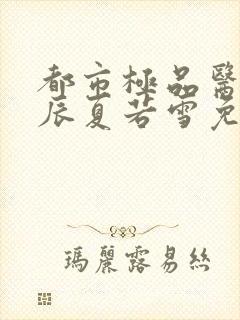 都市極品醫
辰夏若雪免
瑪麗露易絲